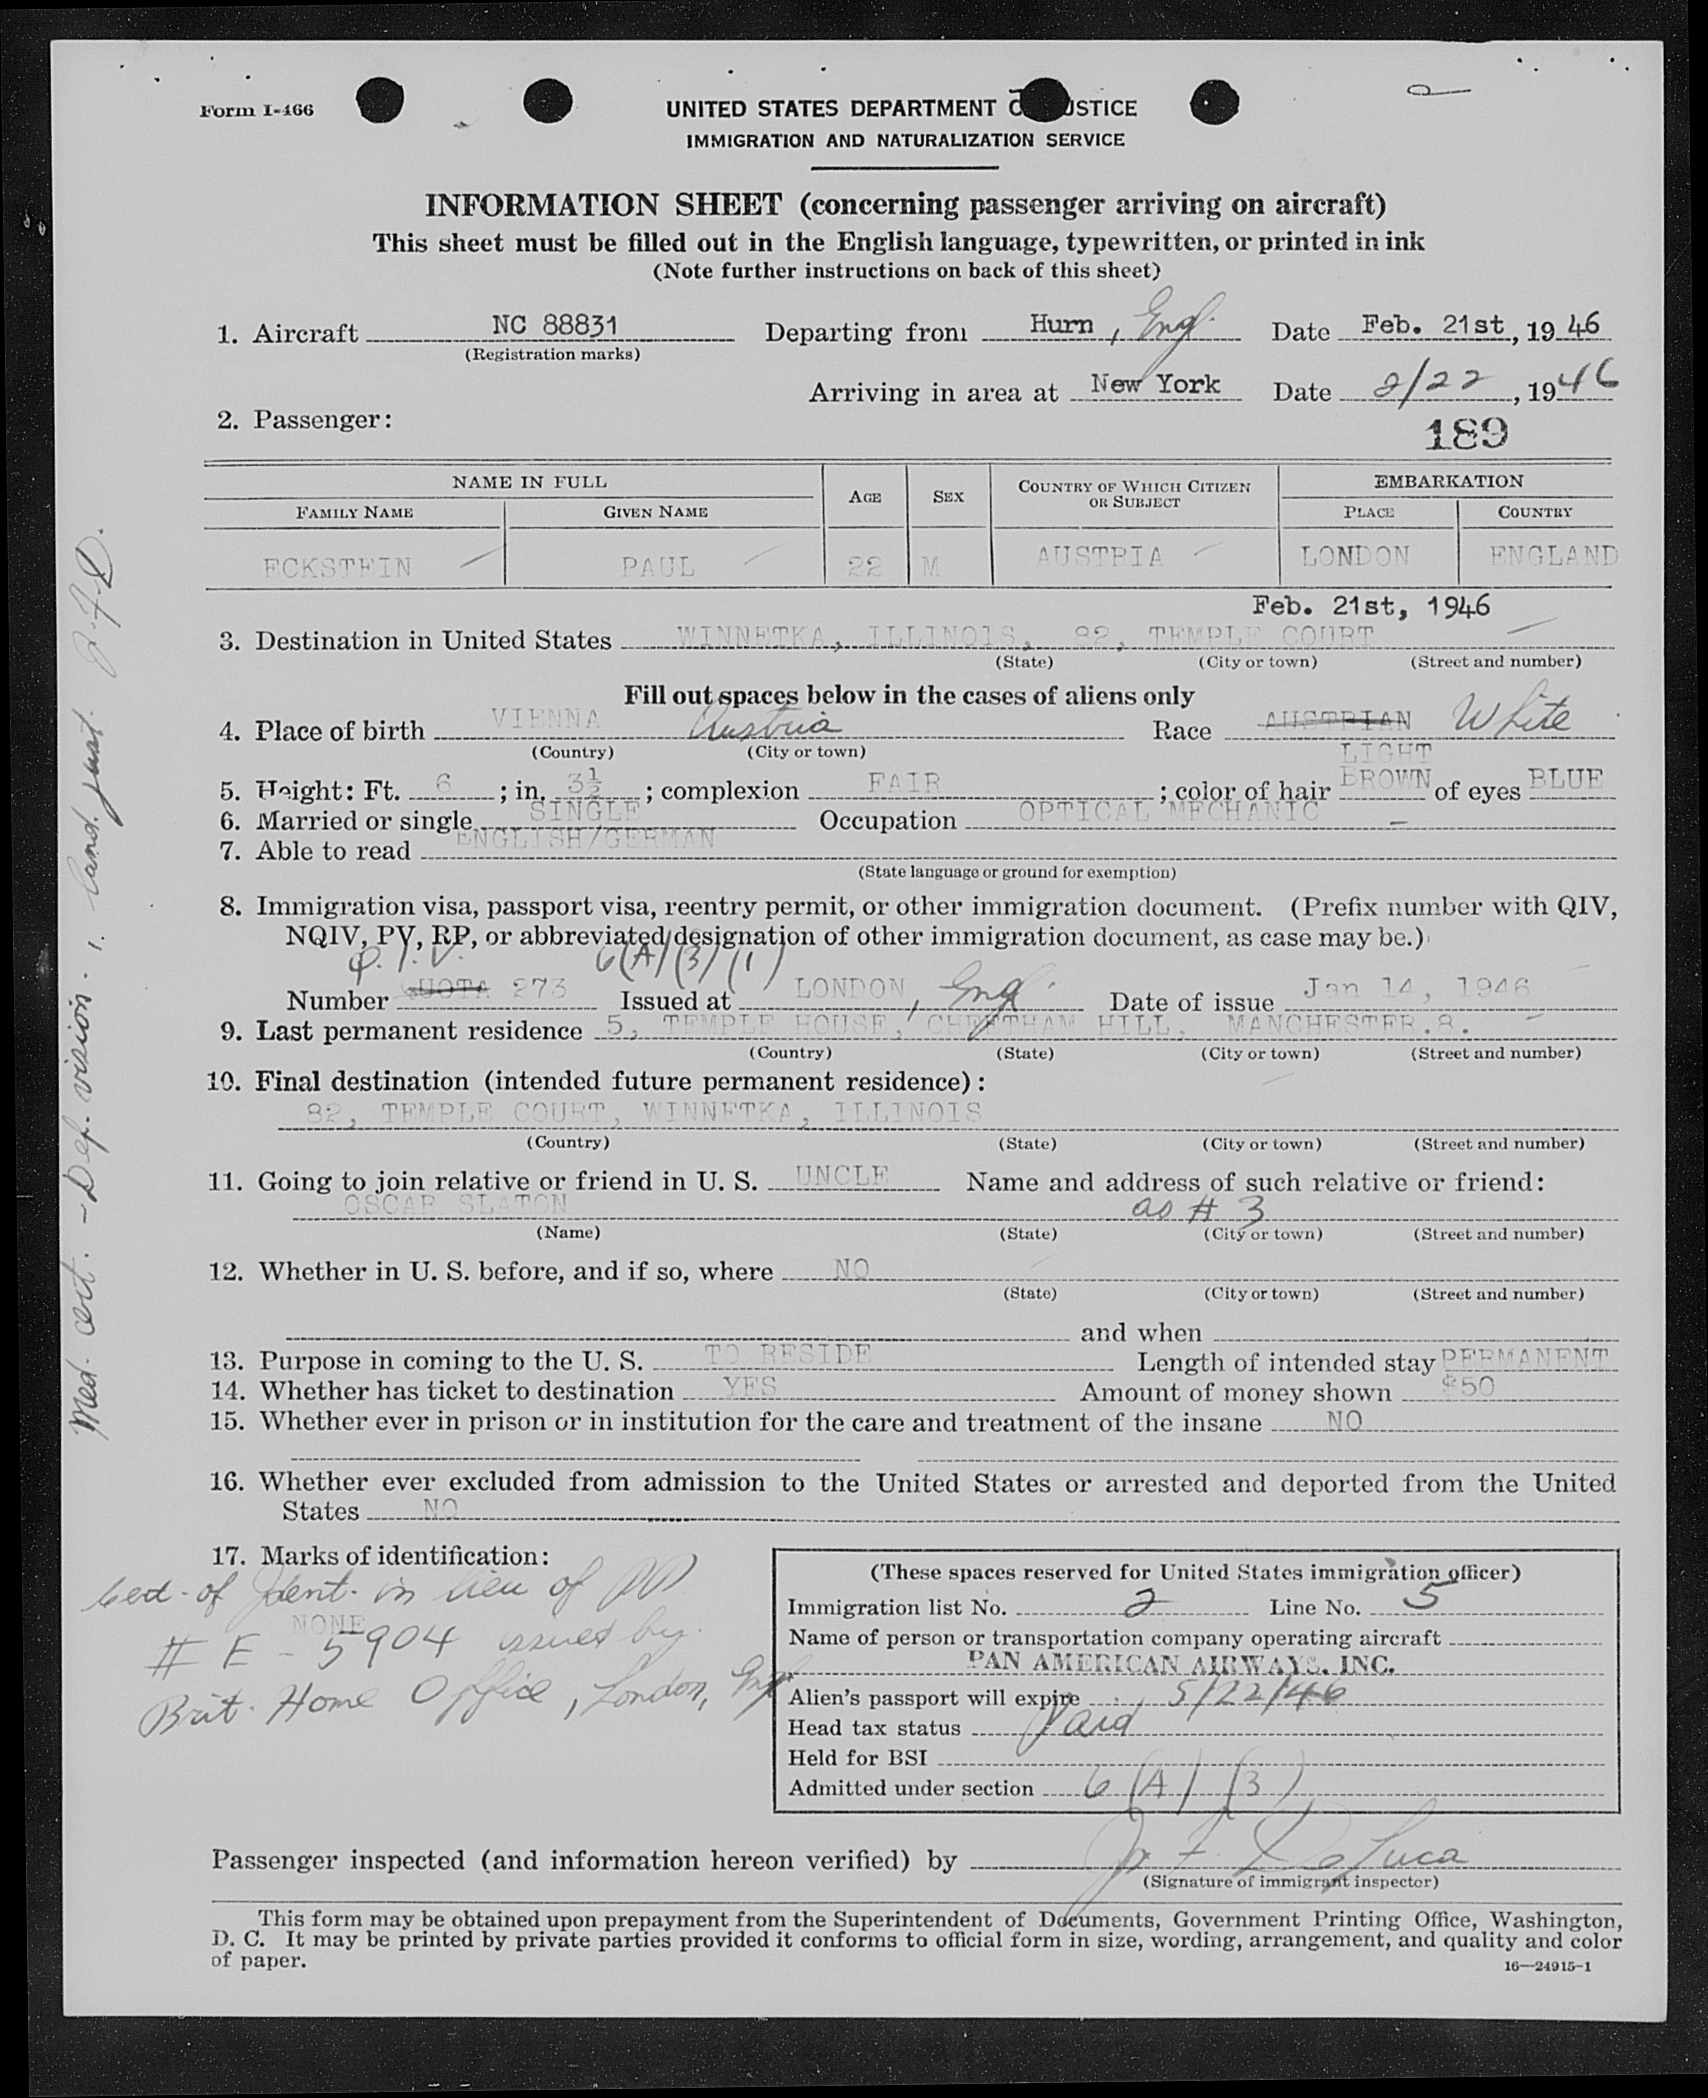 Form I-466
UNITED STATES DEPARTMENT O JUSTICE
IMMIGRATION AND NATURALIZATION SERVICE
INFORMATION SHEET (concerning passenger arriving on aircraft)
This sheet must be filled out in the English language, typewritten, or printed in ink
(Note further instructions on back of this sheet)
1. Aircraft NC 88831 Departing from Hurn, Engl. Date Feb. 21st, 19 46
(Registration marks)
Arriving in area at New York Date 2/22, 19 46
2. Passenger:
189
NAME IN FULL AGE SEX COUNTRY OF WHICH CITIZEN OR SUBJECT EMBARKATION
FAMILY NAME GIVEN NAME PLACE COUNTRY
ECKSTEIN PAUL 22 M AUSTRIA LONDON ENGLAND
Feb. 21st, 1946
3. Destination in United States WINNETKA, ILLINOIS, 82, TEMPLE COURT
(State) (City or town) (Street and number)
Fill out spaces below in the cases of aliens only
4. Place of birth VIENNA Austria Race AUSTRIAN White
(Country) (City or town)
LIGHT
5. Height: Ft. 6; in. 3½; complexion FAIR; color of hair BROWN of eyes BLUE
6. Married or single SINGLE Occupation OPTICAL MECHANIC
7. Able to read ENGLISH/GERMAN
(State language or ground for exemption)
8. Immigration visa, passport visa, reentry permit, or other immigration document. (Prefix number with QIV,
NQIV, PV, RP, or abbreviated designation of other immigration document, as case may be.)
Q.I.V. 6(A)(3)(1)
Number QUOTA 273 Issued at LONDON, Engl. Date of issue Jan 14, 1946
9. Last permanent residence 5, TEMPLE HOUSE, CHEETHAM HILL, MANCHESTER.8.
(Country) (State) (City or town) (Street and number)
10. Final destination (intended future permanent residence):
82, TEMPLE COURT, WINNETKA, ILLINOIS
(Country) (State) (City or town) (Street and number)
11. Going to join relative or friend in U. S. UNCLE Name and address of such relative or friend:
OSCAR SLATON as # 3
(Name) (State) (City or town) (Street and number)
12. Whether in U. S. before, and if so, where NO
(State) (City or town) (Street and number)
and when
13. Purpose in coming to the U. S. TO RESIDE Length of intended stay PERMANENT
14. Whether has ticket to destination YES Amount of money shown $50
15. Whether ever in prison or in institution for the care and treatment of the insane NO
16. Whether ever excluded from admission to the United States or arrested and deported from the United
States NO
17. Marks of identification:
Cert. of Ident. in lieu of PP
NONE
# E - 5904 issued by
Brit. Home Office, London, Engl.
(These spaces reserved for United States immigration officer)
Immigration list No. 2 Line No. 5
Name of person or transportation company operating aircraft
PAN AMERICAN AIRWAYS, INC.
Alien's passport will expire 5/22/46
Head tax status Paid
Held for BSI
Admitted under section 6(A)(3)
Passenger inspected (and information hereon verified) by J. F. DeLuca
(Signature of immigrant inspector)
This form may be obtained upon prepayment from the Superintendent of Documents, Government Printing Office, Washington,
D. C. It may be printed by private parties provided it conforms to official form in size, wording, arrangement, and quality and color
of paper.
16—24915-1
Med. cert. - Def. vision. 1. Cand. just. J.F.D.